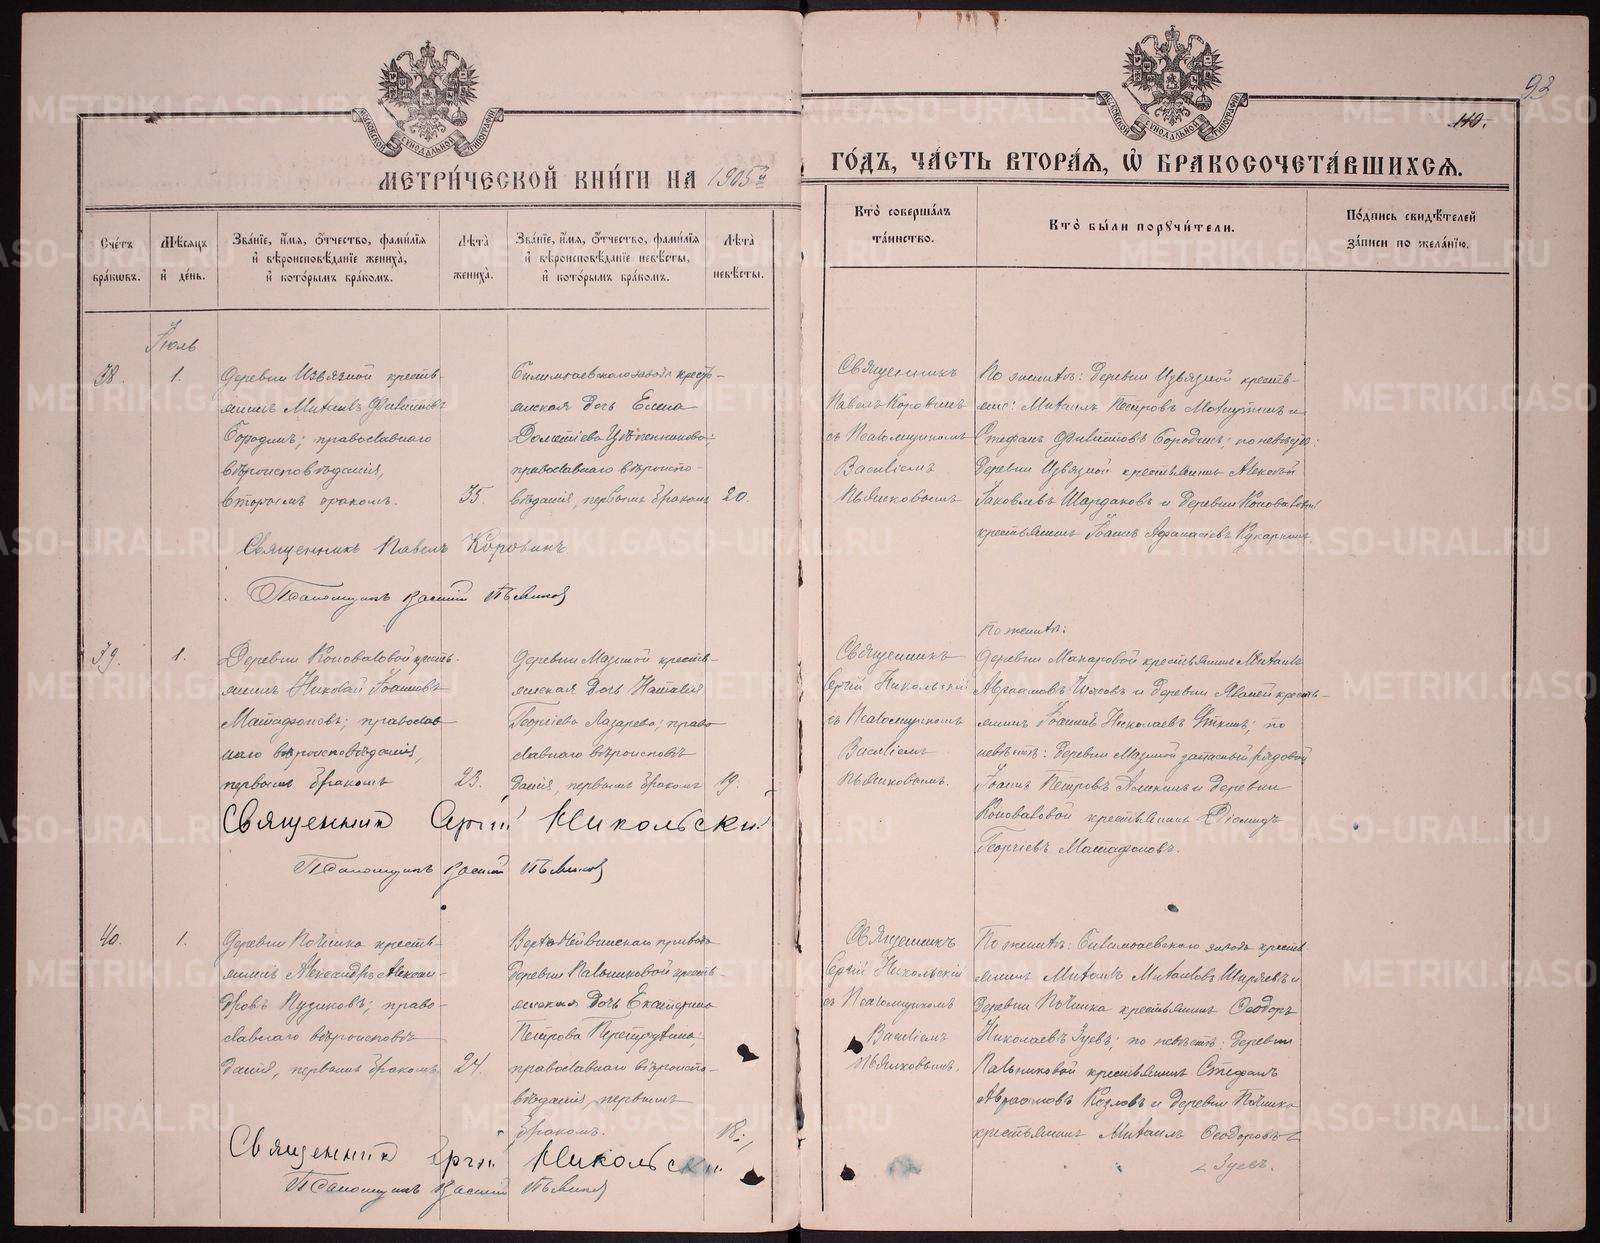 93
110.
МЕТРИ́ЧЕСКОЙ КНИ́ГИ НА 1905й
ГО́ДЪ, ЧА́СТЬ ВТОРА́Я, Ѡ БРАКОСОЧЕТА́ВШИХСЯ.
Сче́тъ бра́кѡвъ.
Мѣ́сяцъ и́ де́нь.
Зва́нїе, и́мя, ѻ́тчество, фами́лїя и́ вѣроисповѣ́данїе жениха̀, и́ кото́рымъ бра́комъ.
Лѣ́та жениха̀.
Зва́нїе, и́мя, ѻ́тчество, фами́лїя и́ вѣроисповѣ́данїе невѣ́сты, и́ кото́рымъ бра́комъ.
Лѣ́та невѣ́сты.
Кто̀ соверша́лъ та́инство.
Кто̀ бы́ли порꙋчи́тели.
По́дпись свидѣ́телей за́писи по жела́нїю.
Іюль
38.
1.
Деревни Извязной кресть-
янинъ Михаилъ Филипповъ
Бородинъ; православнаго
вѣроисповѣданія,
вторымъ бракомъ.
35.
Билимбаевскаго завода кресть-
янская дочь Елена
православнаго вѣроиспо-
вѣданія, первымъ бракомъ
20.
Священникъ
Павелъ Коровинъ
съ Псаломщикомъ
Василіемъ
Пьянковымъ
По женихѣ: деревни Извязной кресть-
яне: Михаилъ Петровъ и
Стефанъ Филипповъ Бородинъ; по невѣстѣ:
деревни Извязной крестьянинъ Алексѣй
Іаковлевъ Шардаковъ и деревни Коноваловой
крестьянинъ Іоаннъ Аѳанасіевъ
Священникъ Павелъ Коровинъ
Псаломщикъ Василій Пьянковъ
39.
1.
Деревни Коноваловой кресть-
янинъ Николай Іоанновъ
Матафоновъ; православ
наго вѣроисповѣданія,
первымъ бракомъ
23.
Деревни Мазиной кресть-
янская дочь Наталія
Георгіева Лазарева; право
славнаго вѣроисповѣ
данія, первымъ бракомъ
19.
Священникъ
Сергій Никольскій
съ Псаломщикомъ
Василіемъ
Пьянковымъ.
По женихѣ:
деревни Макаровой крестьянинъ Михаилъ
Авраамовъ и деревни кресть-
янинъ Іоаннъ Николаевъ по
невѣстѣ: деревни Мазиной запасный рядовой
Іоаннъ Петровъ и деревни
Коноваловой крестьянинъ Діомидъ
Георгіевъ Матафоновъ.
Священникъ Сергій Никольскій
Псаломщикъ Василій Пьянковъ
40.
1.
Деревни Починка кресть-
янинъ Александръ Алексан-
дровъ Пузиковъ; право-
славнаго вѣроисповѣ
данія, первымъ бракомъ
24.
Верхнейвинскаго прихода
деревни Пальниковой кресть-
янская дочь Екатерина
Петрова
православнаго вѣроиспо-
вѣданія, первымъ
бракомъ.
18.
Священникъ
Сергій Никольскій
съ Псаломщикомъ
Василіемъ
Пьянковымъ.
По женихѣ: Билимбаевскаго завода кресть-
янинъ Михаилъ Михаиловъ Ширяевъ и
деревни Починка крестьянинъ Ѳеодоръ
Николаевъ Зуевъ; по невѣстѣ: деревни
Пальниковой крестьянинъ Стефанъ
Авраамовъ Козловъ и деревни Починка
крестьянинъ Михаилъ Ѳеодоровъ
Зуевъ.
Священникъ Сергій Никольскій
Псаломщикъ Василій Пьянковъ